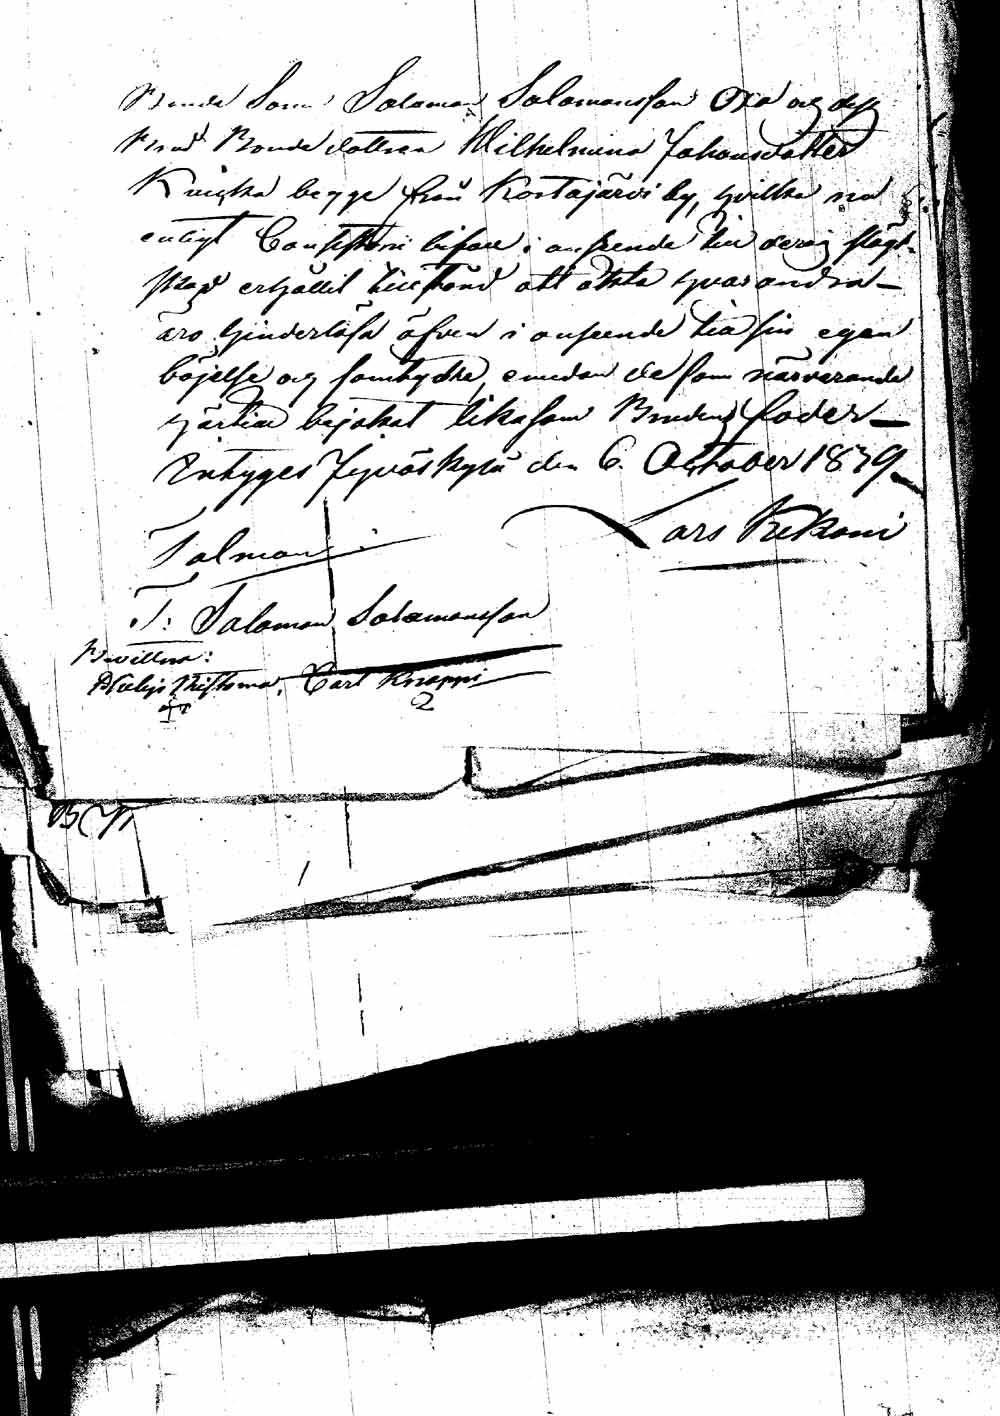 Bonde Sonen Salomon Salomonsson Oxa och dess
Brud Bonde dottren Wilhelmina Johansdotter
Kniska begge från Kortajärvi by, hvilka
enligt Consistorii i anseende till deras slägt-
skap erhållit tillstånd att äkta hvarandra –
äro hinderlösa äfven i anseende till sin egen
böjelse och samtycke, emedan de som närvarande
bejakat likasom Brudens fader –
Intyges Jyväskylä den 6. October 1839
Lars Kekoni
Talman
T: Salomon Salomonsson
Bevittna:
Carl Knappi
2